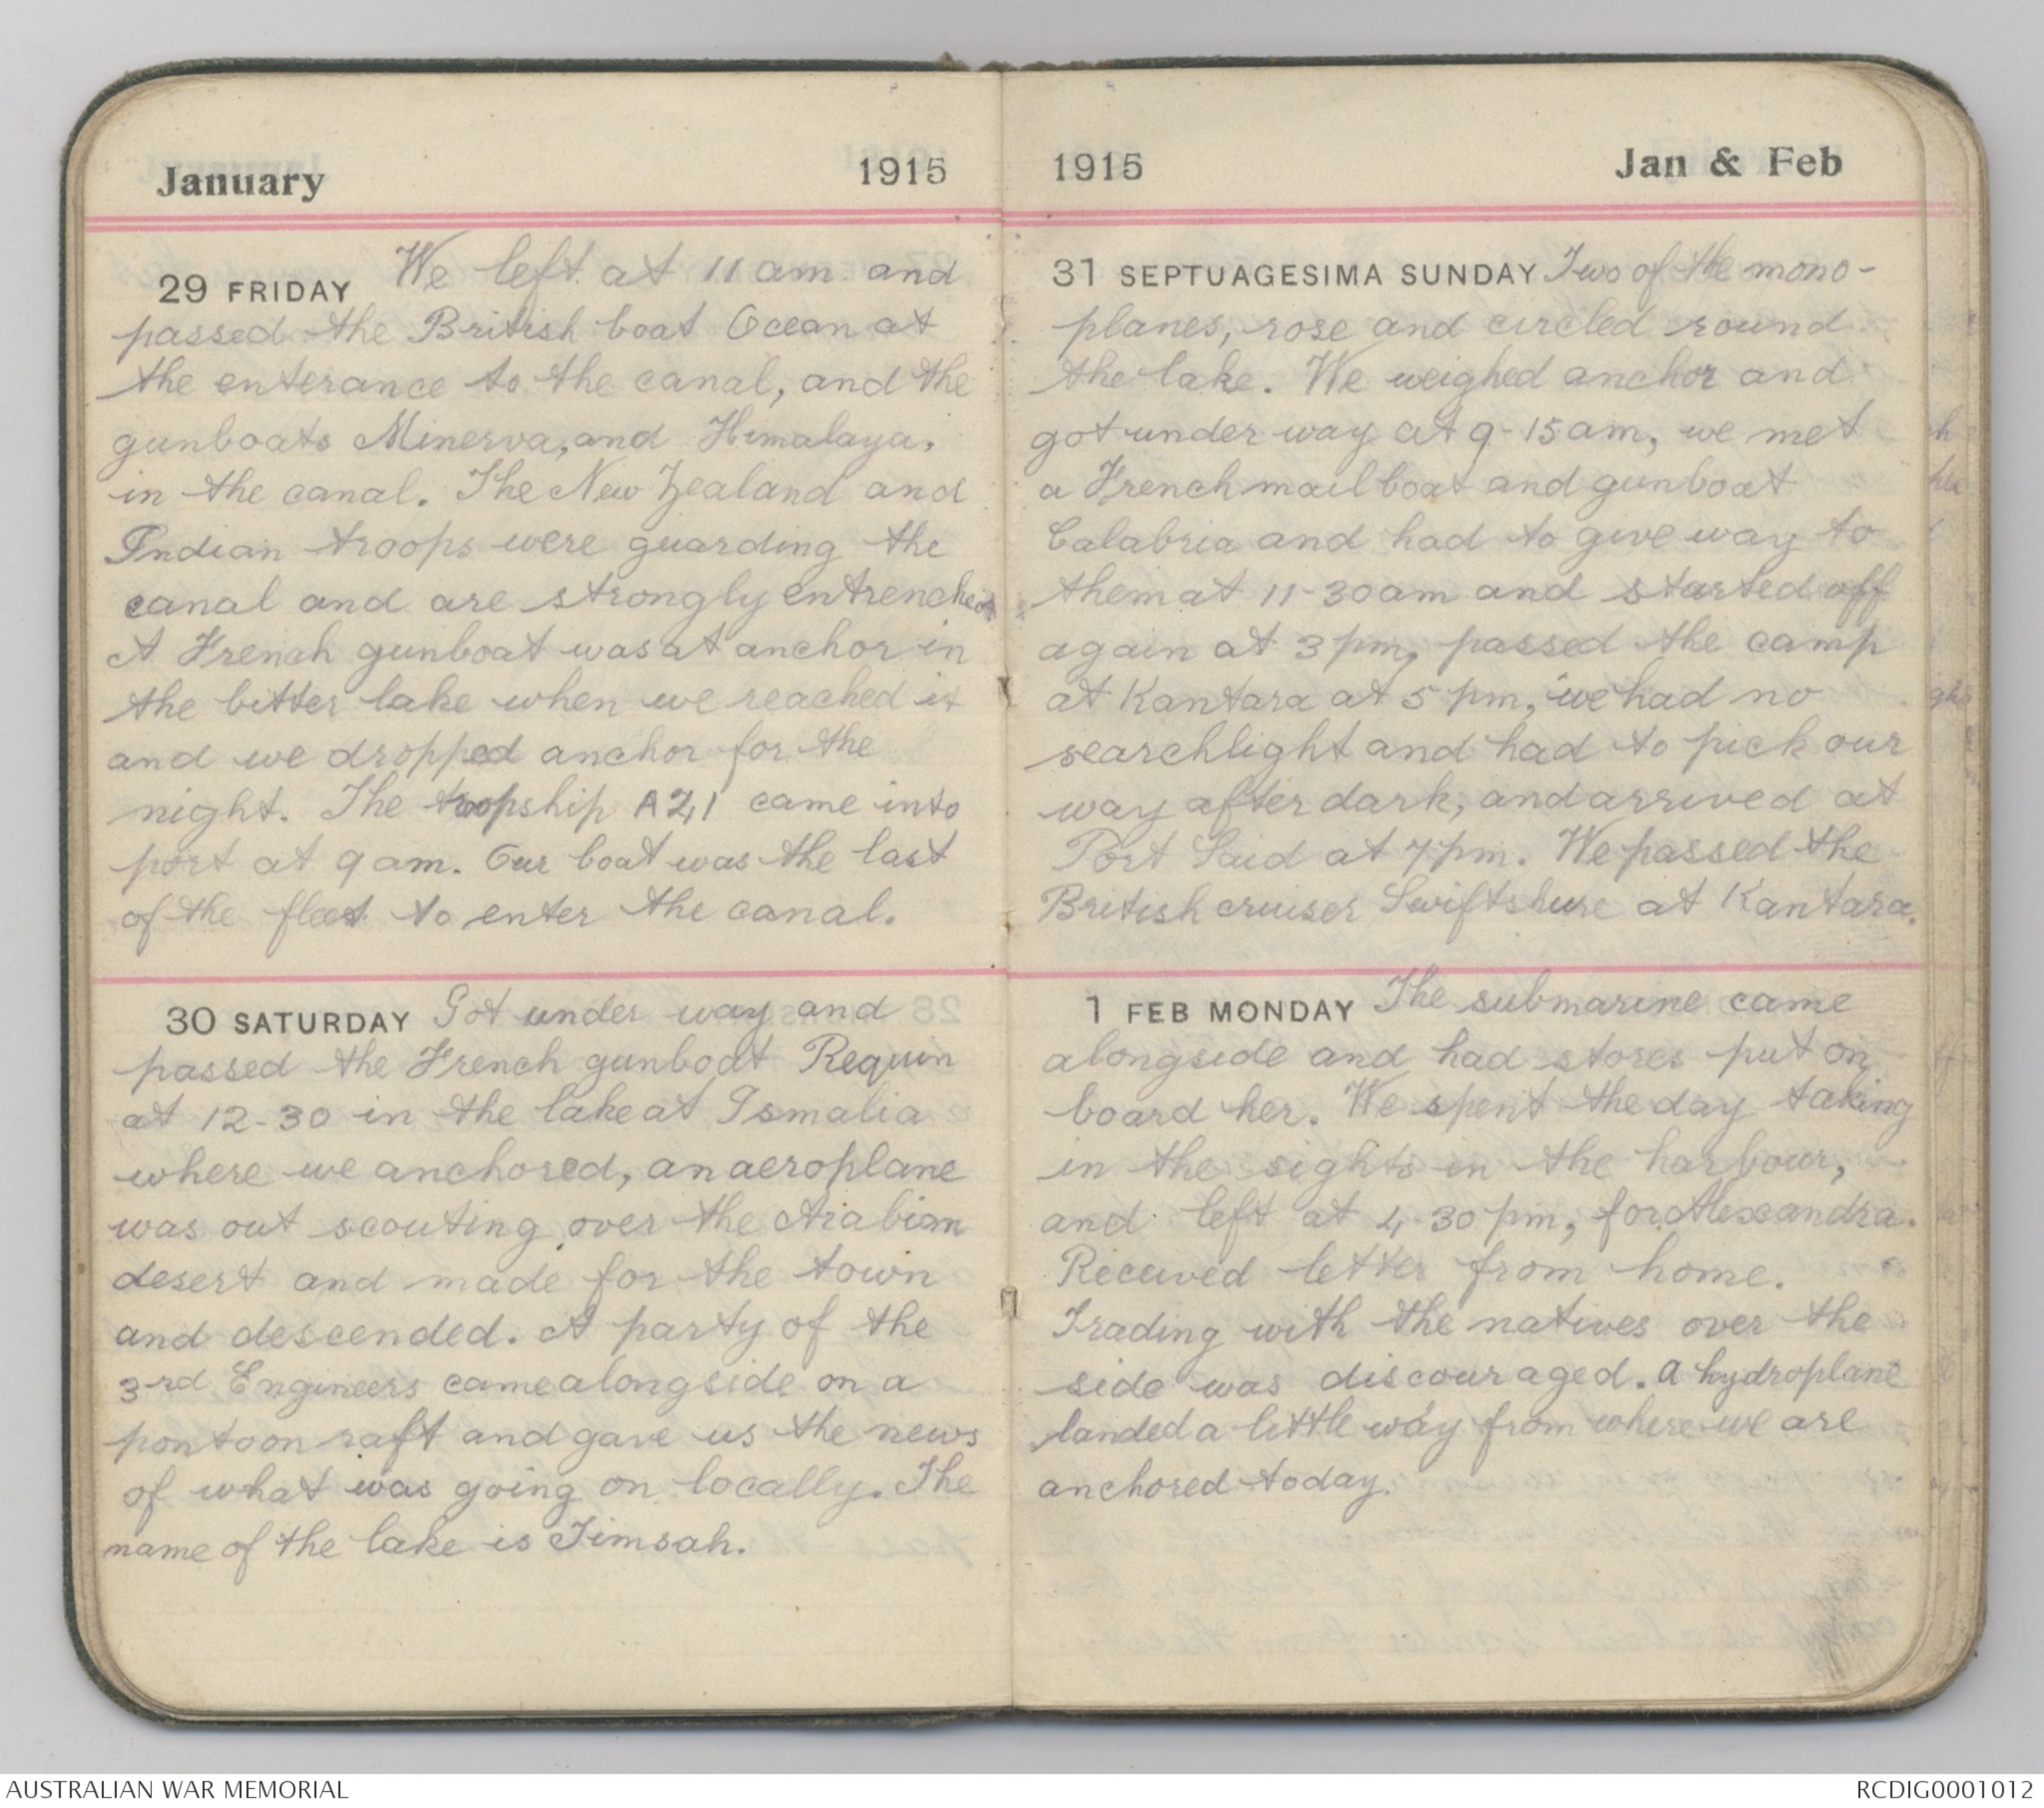 January 1915
29 FRIDAY We left at 11 am and
passed the British boat Ocean at
the enterance to the canal, and the
gunboats Minerva, and Himalaya,
in the canal. The New Zealand and
Indian troops were guarding the
canal and are strongly entrenched
A French gunboat was at anchor in
the bitter lake when we reached it
and we dropped anchor for the
night. The troopship A41 came into
port at 9 am. Our boat was the last
of the fleet to enter the canal.
30 SATURDAY Got under way and
passed the French gunboat Requin
at 12-30 in the lake at Ismalia
where we anchored, an aeroplane
was out scouting over the Arabian
desert and made for the town
and descended. A party of the
3rd Engineers came alongside on a
pontoon raft and gave us the news
of what was going on locally. The
name of the lake is Timsah.
1915 Jan & Feb
31 SEPTUAGESIMA SUNDAY Two of the mono-
planes, rose and circled round
the lake. We weighed anchor and
got under way at 9-15 am, we met
a French mail boat and gunboat
Calabria and had to give way to
them at 11-30 am and started off
again at 3 pm, passed the camp
at Kantara at 5 pm, we had no
searchlight and had to pick our
way after dark, and arrived at
Port Said at 7 pm. We passed the
British cruiser Swiftshure at Kantara.
1 FEB MONDAY The submarine came
alongside and had stores put on
board her. We spent the day taking
in the sights in the harbour,
and left at 4-30 pm, for Alexandra.
Received letter from home.
Trading with the natives over the
side was discouraged. A hydroplane
landed a little way from where we are
anchored today.
AUSTRALIAN WAR MEMORIAL
RCDIG0001012